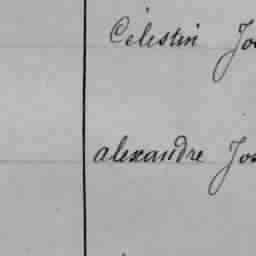 Célestin Jo
alexandre Jos